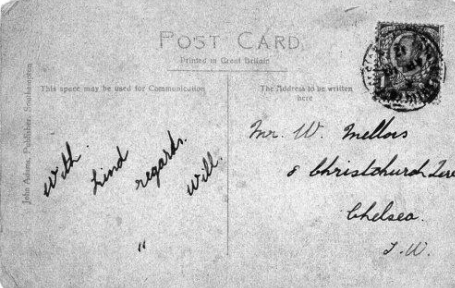 POST CARD.
Printed in Great Britain
This space may be used for Communication
The Address to be written
here
John Adams, Publisher, Southampton
with
kind
regards.
Will.
"
Mr. W. Mellors
8 Christchurch Terr
Chelsea.
S.W.